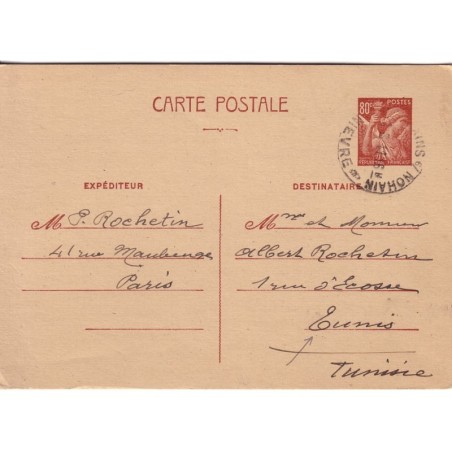 CARTE POSTALE
80c
POSTES
RÉPUBLIQUE FRANÇAISE
NOHAIN
NIEVRE
EXPÉDITEUR
M P. Rochetin
41 rue Maubeuge
Paris
DESTINATAIRE
Mme et Monsieur
Albert Rochetin
1 rue d'Ecosse
Tunis
Tunisie